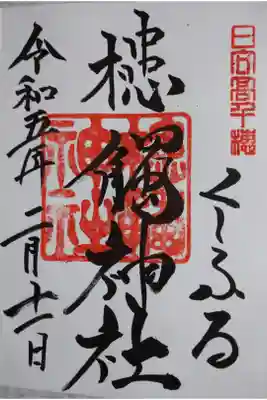 日向高千穂
くしふる
槵觸神社
令和五年 二月十一日